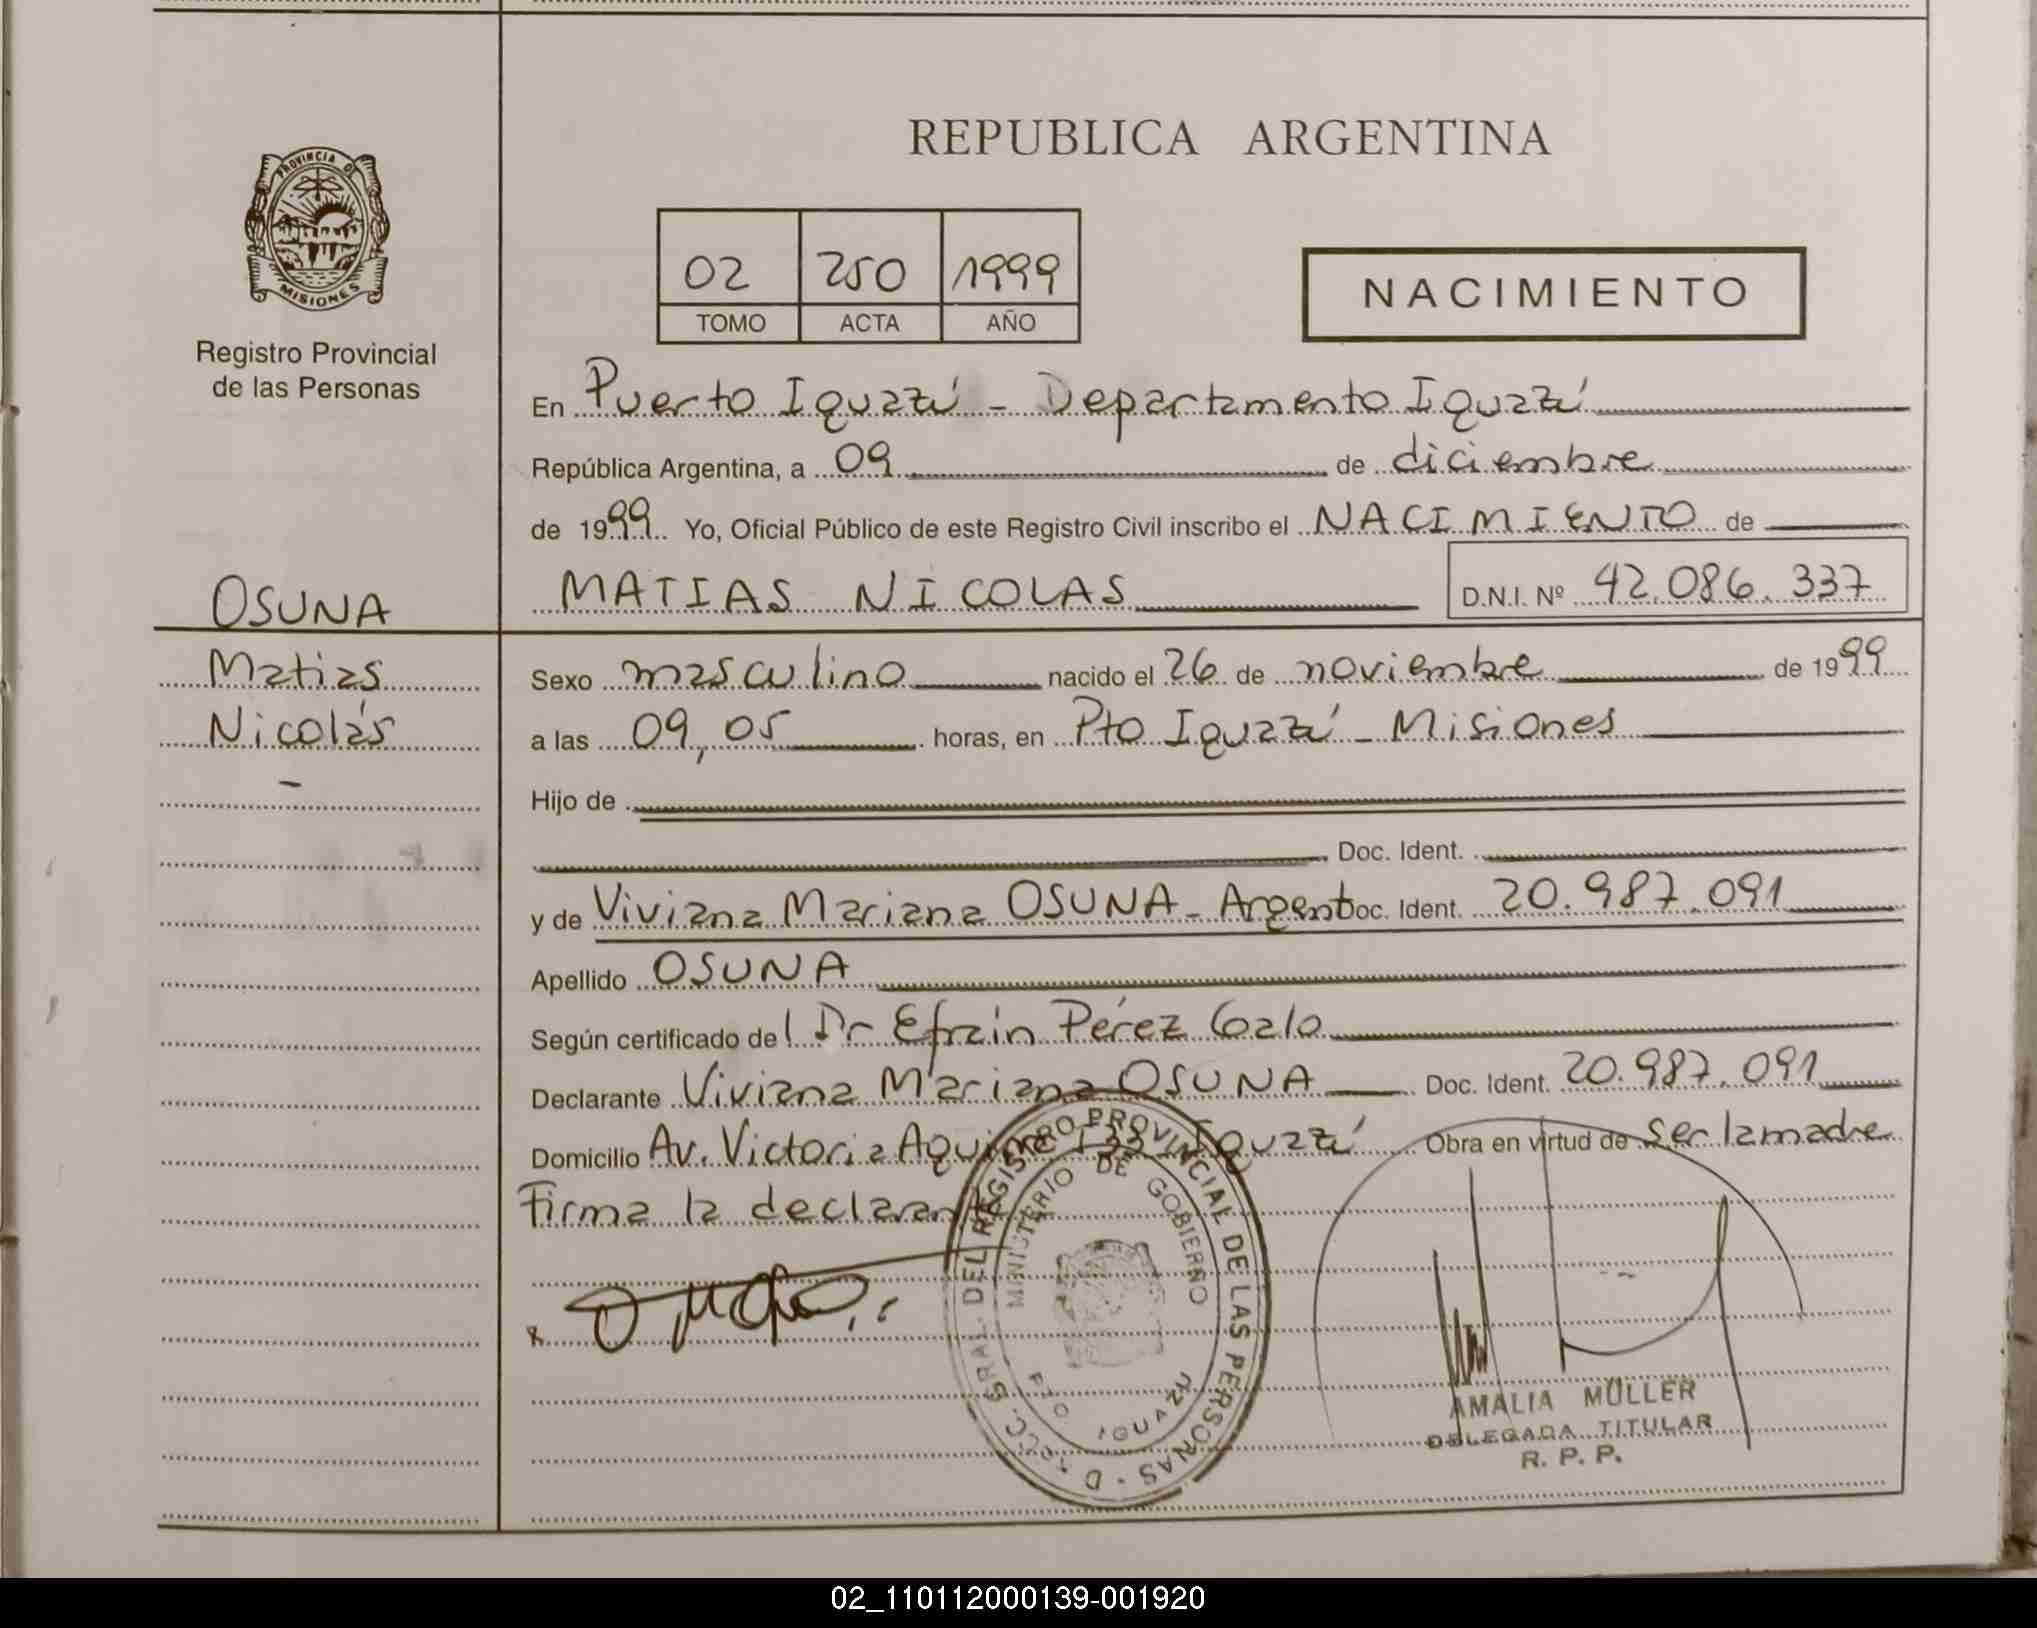 REPUBLICA ARGENTINA
PROVINCIA DE
MISIONES
Registro Provincial
de las Personas
02 250 1999
TOMO ACTA AÑO
NACIMIENTO
En Puerto Iguazú - Departamento Iguazú
República Argentina, a 09 de diciembre
de 1999 Yo, Oficial Público de este Registro Civil inscribo el NACIMIENTO de
OSUNA MATIAS NICOLAS D.N.I. Nº 42.086.337
Matias Sexo masculino nacido el 26 de noviembre de 1999
Nicolás a las 09,05 horas, en Pto Iguazú - Misiones
- Hijo de
Doc. Ident.
y de Viviana Mariana OSUNA - Argent Doc. Ident. 20.987.091
Apellido OSUNA
Según certificado del Dr Efrain Pérez
Declarante Viviana Mariana OSUNA Doc. Ident. 20.987.091
Domicilio Av. Victoria Aguirre Iguazú Obra en virtud de ser la madre
Firma la declarante
DIRECC. GRAL. DEL REGISTRO PROVINCIAL DE LAS PERSONAS
MINISTERIO DE GOBIERNO
PTO. IGUAZU
AMALIA MÜLLER
DELEGADA TITULAR
R. P. P.
02_110112000139-001920